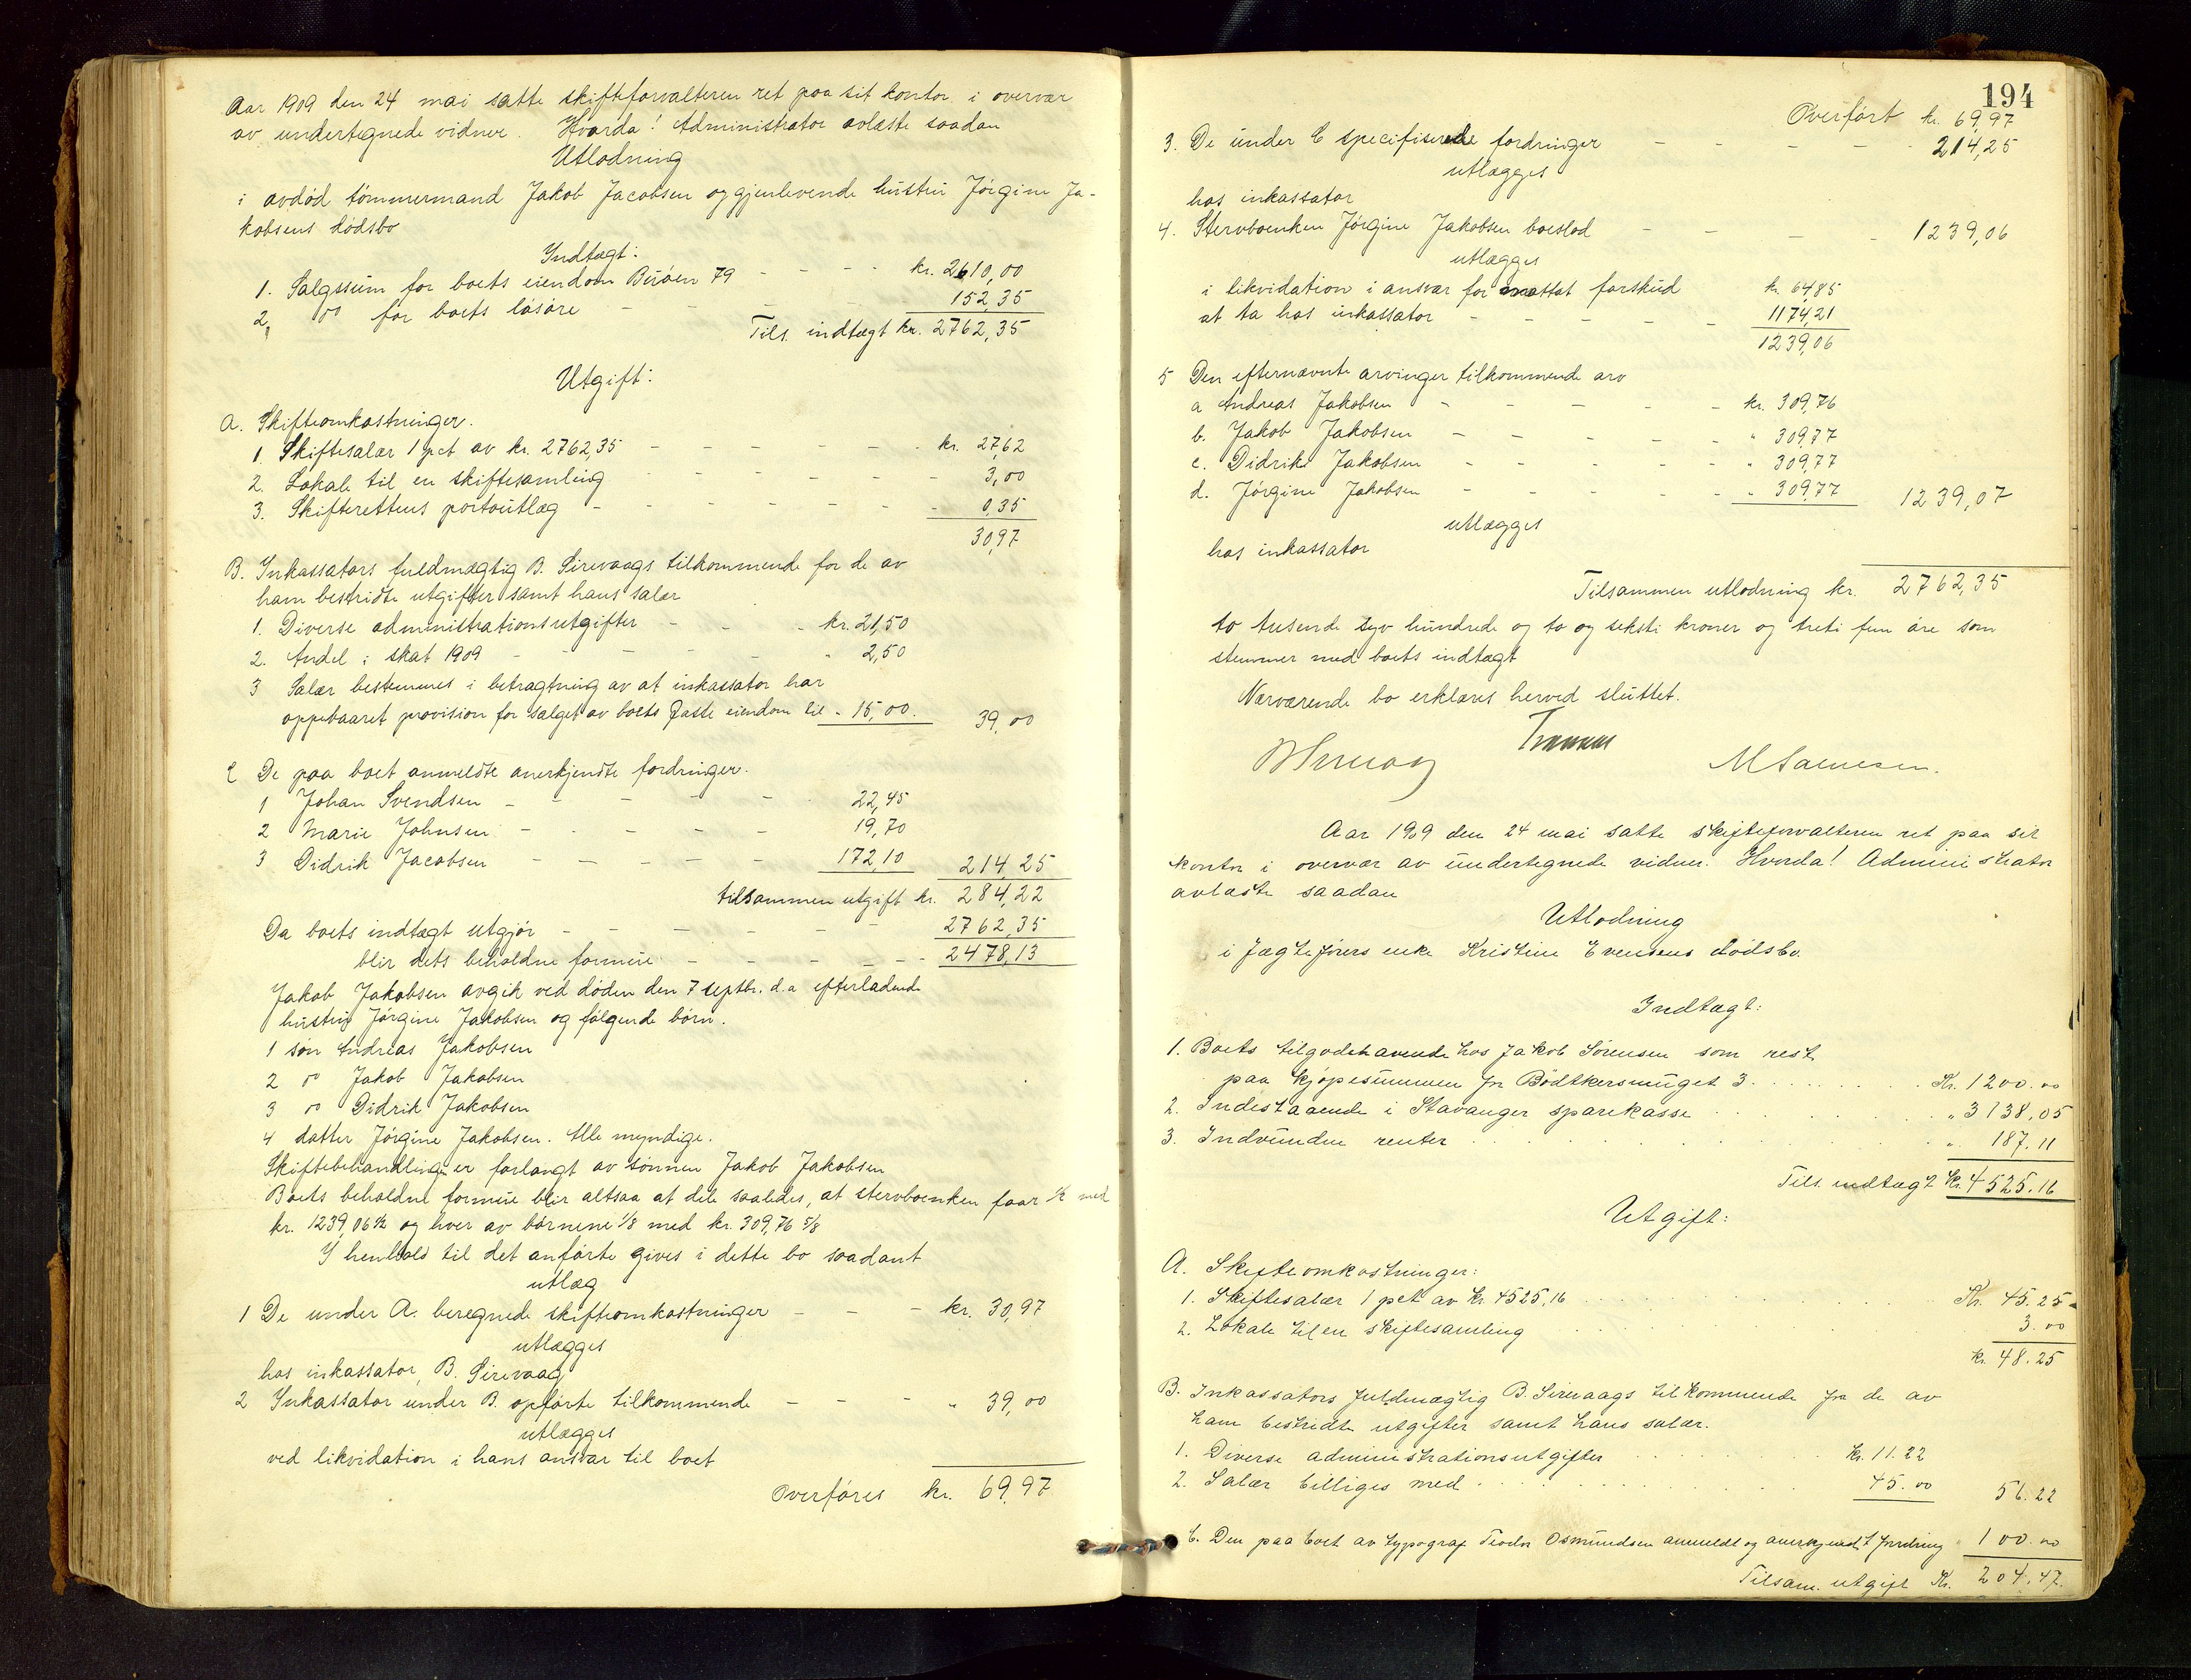 Aar 1909 den 24 mai satte skifteforvalteren ret paa sit kontor i overvær
av undertegnede vidner. Hvorda! Administrator avlæste saadan
Utlodning
i avdød tømmermand Jakob Jacobsen og gjenlevende hustru Jørgine Ja-
kobsens dødsbo
Indtægt:
1. Salgssum for boets eiendom Buøen 79 - - - - kr. 2610,00
2. do for boets løsøre - - - 152,35
Tils. indtægt kr. 2762,35
Utgift:
A. Skifteomkostninger.
1. Skiftesalær 1 pct av kr. 2762,35 - - - - - kr. 27,62
2. Lokale til en skiftesamling - - - - - - 3,00
3. Skifterettens portoutlæg - - - - - - - 0,35
30,97
B. Inkassators fuldmægtig B. Sirevaags tilkommende for de av
ham bestridte utgifter samt hans salær
1. Diverse administrationsutgifter - - - kr. 21,50
2. Andel i skat 1909 - - - - - " 2,50
3 Salær bestemmes i betragtning av at inkassator har
oppebaaret provision for salget av boets faste eiendom til - 15,00. 39,00
C De paa boet anmeldte anerkjendte fordringer.
1 Johan Svendsen - - - - - 22,45
2 Marie Johnsen - - - - - 19,70
3 Didrik Jacobsen - - - - - 172,10 214,25
tilsammen utgift kr. 284,22
Da boets indtægt utgjør - - - - - - 2762,35
blir dets beholdne formue - - - - - 2478,13
Jakob Jakobsen avgik ved døden den 7 septbr. d.a efterladende
hustru Jørgine Jakobsen og følgende børn.
1 søn Andreas Jakobsen
2 do Jakob Jakobsen
3 do Didrik Jakobsen
4 datter Jørgine Jakobsen. Alle myndige.
Skiftebehandling er forlangt av sønnen Jakob Jakobsen
Boets beholdne formue blir altsaa at dele saaledes, at stervboenken faar ½ med
kr. 1239,06½ og hver av børnene 1/8 med kr. 309,76 5/8
I henhold til det anførte gives i dette bo saadant
utlæg
1 De under A. beregnede skifteomkostninger - - - kr. 30,97
utlægges
hos inkassator, B. Sirevaag
2 Inkassator under B. opførte tilkommende - - - " 39,00
utlægges
ved likvidation i hans ansvar til boet
Overføres kr. 69,97
194
Overført kr. 69,97
3. De under C specifiserede fordringer - - - - - 214,25
utlægges
hos inkassator
4. Stervboenken Jørgine Jakobsen boeslod - - - - 1239,06
utlægges
i likvidation i ansvar for mottat forskud kr. 64,85
at ta hos inkassator - - - - - 1174,21
1239,06
5 Den efternævnte arvinger tilkommende arv
a Andreas Jakobsen - - - - - kr. 309,76
b. Jakob Jakobsen - - - - - " 309,77
c. Didrik Jakobsen - - - - - " 309,77
d. Jørgine Jakobsen - - - - - " 309,77 1239,07
utlægges
hos inkassator
Tilsammen utlodning kr. 2762,35
to tusende syv hundrede og to og seksti kroner og treti fem øre som
stemmer med boets indtægt
Nærværende bo erklæres herved sluttet.
Aar 1909 den 24 mai satte skifteforvalteren ret paa sit
kontor i overvær av undertegnede vidner. Hvorda! Administrator
avlæste saadan
Utlodning
i Jægteførers enke Kristine Evensens dødsbo.
Indtægt:
1. Boets tilgodehavende hos Jakob Sørensen som rest
paa kjøpesummen for Bødtkersmuget 3. . . . . . . Kr. 1200.00
2. Indestaaende i Stavanger sparekasse . . . . . . . " 3138,05
3. Indvundne renter . . . . . . . . . " 187.11
Tils. indtægt Kr. 4525.16
Utgift:
A. Skifteomkostninger:
1. Skiftesalær 1 pct av kr. 4525,16 . . . . . . Kr. 45.25
2. Lokale til en skiftesamling . . . . . . 3.00
kr. 48.25
B. Inkassators fuldmægtig B. Sirevaags tilkommende for de av
ham bestridte utgifter samt hans salær.
1. Diverse administrationsutgifter . . . . . Kr. 11.22
2. Salær billiges med . . . . . . . 45.00 56.22
C. Den paa boet av typograf Teodor Osmundsen anmeldt og anerkjendt fordring " 100.00
Tilsam. utgift Kr. 204.47.